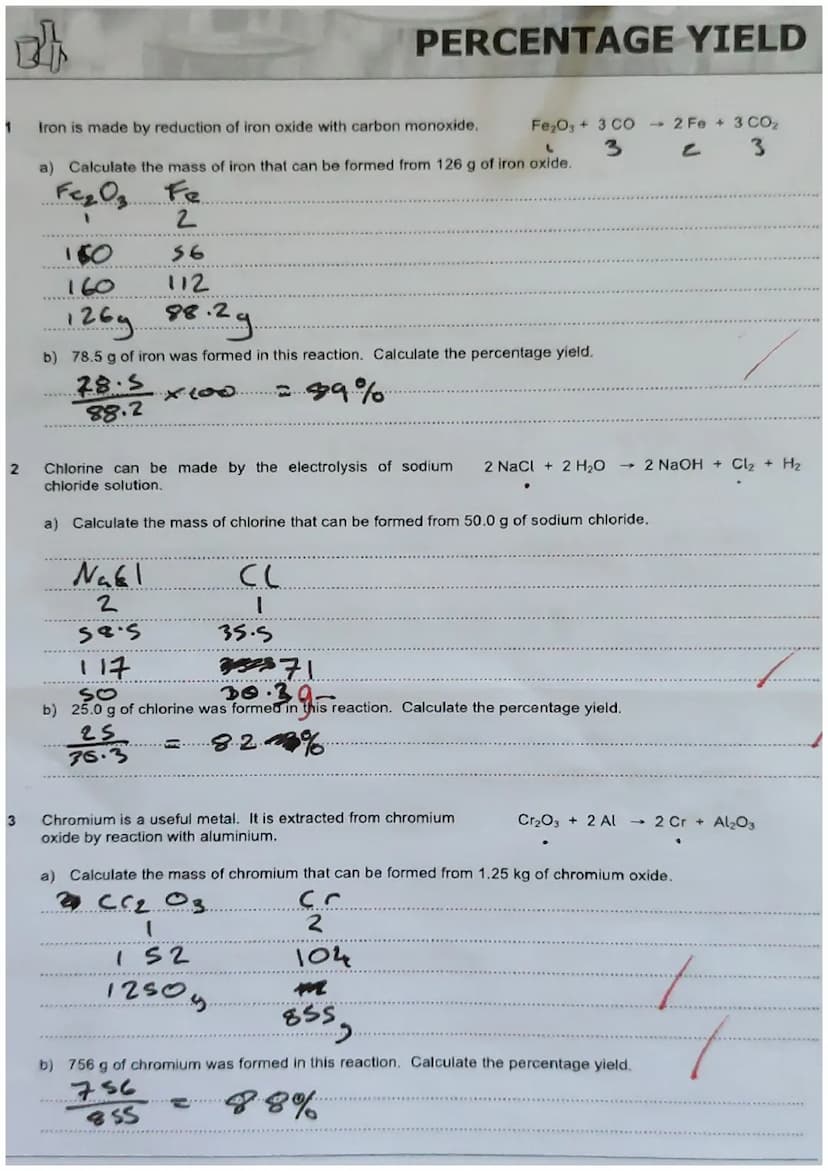 PERCENTAGE YIELD
1 Iron is made by reduction of iron oxide with carbon monoxide. Fe₂O₃ + 3 CO → 2 Fe + 3 CO₂
1 3 2 3
a) Calculate the mass of iron that can be formed from 126 g of iron oxide.
Fe₂O₃ Fe
1 2
160 56
160 112
126g 88.2g
b) 78.5 g of iron was formed in this reaction. Calculate the percentage yield.
78.5
88.2 × 100 = 89%
2 Chlorine can be made by the electrolysis of sodium chloride solution. 2 NaCl + 2 H₂O → 2 NaOH + Cl₂ + H₂
a) Calculate the mass of chlorine that can be formed from 50.0 g of sodium chloride.
NaCl Cl
2 1
58.5 35.5
117 71
50 30.3 g
b) 25.0 g of chlorine was formed in this reaction. Calculate the percentage yield.
25
30.3 = 82 %
3 Chromium is a useful metal. It is extracted from chromium oxide by reaction with aluminium. Cr₂O₃ + 2 Al → 2 Cr + Al₂O₃
a) Calculate the mass of chromium that can be formed from 1.25 kg of chromium oxide.
Cr₂O₃ Cr
1 2
152 104
1250g
855g
b) 756 g of chromium was formed in this reaction. Calculate the percentage yield.
756
855 = 88%